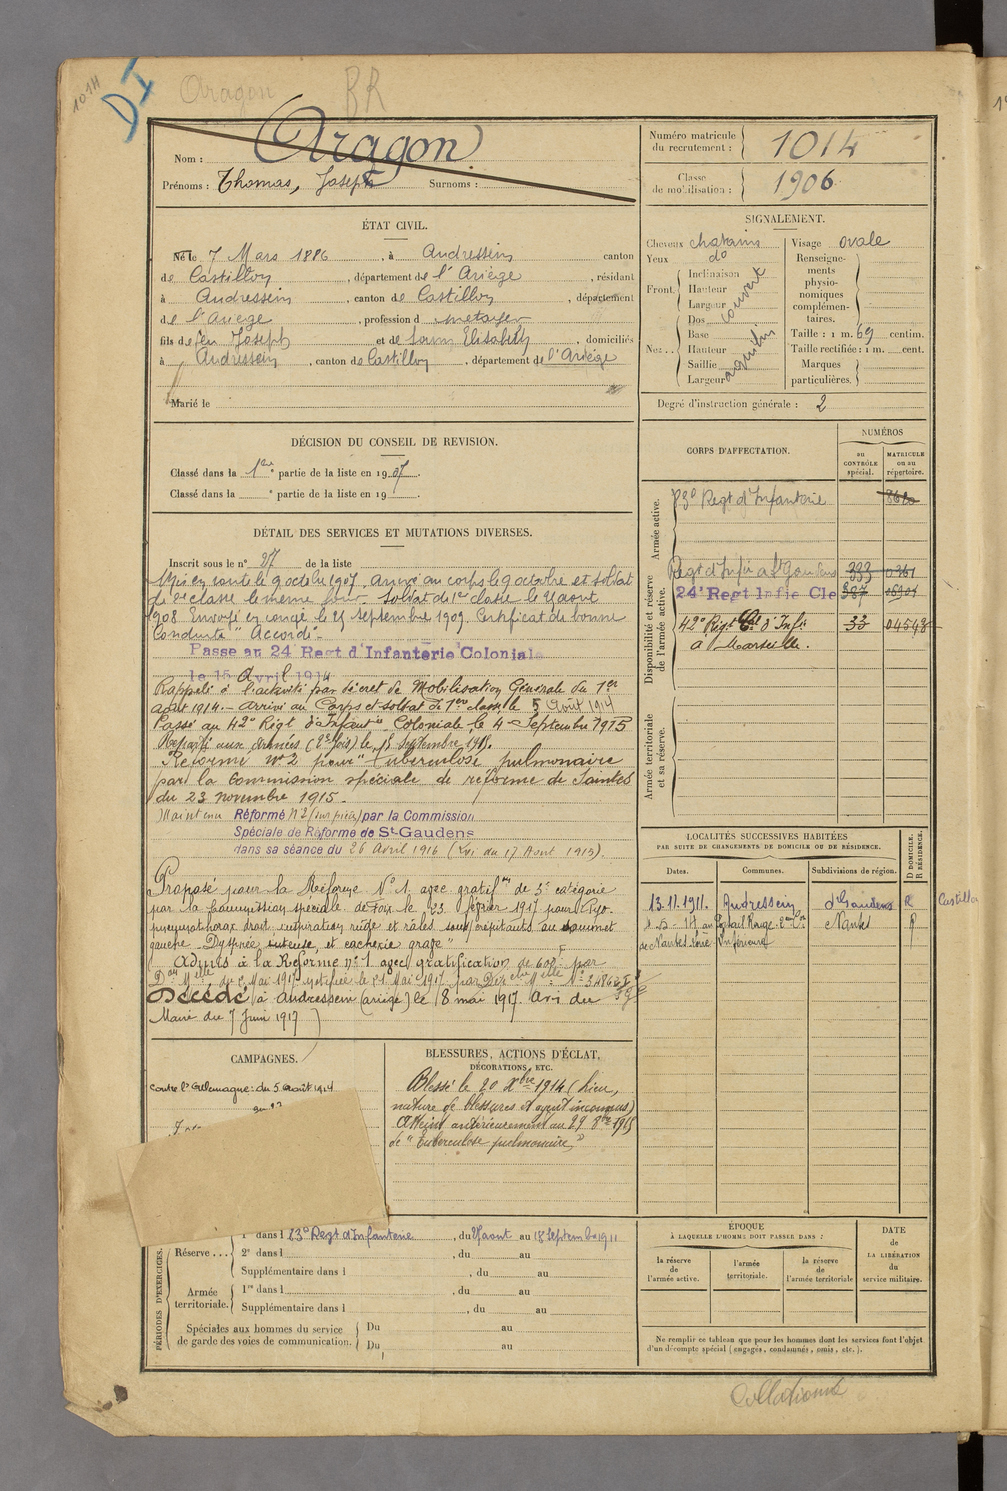 1014
DI
Aragon
BR
Nom : Aragon
Prénoms : Thomas, Joseph Surnoms :
Numéro matricule du recrutement : 1014
Classe de mobilisation : 1906
ÉTAT CIVIL.
Né le 7 Mars 1886, à Andressein canton
de Castillon, département de l'Ariège, résidant
à Andressein, canton de Castillon, département
de l'Ariège, profession d metayer
fils de feu Joseph et de Elisabeth, domiciliés
à Andressein, canton de Castillon, département de l'Ariège
Marié le
SIGNALEMENT.
Cheveux chatains
Yeux do
Front. Inclinaison
Hauteur
Largeur
couvert
Nez.. Dos
Base
Hauteur
Saillie
Largeur
aquilin
Visage ovale
Renseignements physionomiques complémentaires.
Taille : 1 m. 69 centim.
Taille rectifiée : 1 m. cent.
Marques particulières.
Degré d'instruction générale : 2
DÉCISION DU CONSEIL DE REVISION.
Classé dans la 1ère partie de la liste en 1907.
Classé dans la e partie de la liste en 19
DÉTAIL DES SERVICES ET MUTATIONS DIVERSES.
Inscrit sous le n° 27 de la liste
Mis en route le 9 octobre 1907. Arrivé au corps le 9 octobre et soldat
de 2e classe le même jour. Soldat de 1e classe le 2 aout
1908. Envoyé en congé le 25 septembre 1909. Certificat de bonne
Conduite "Accordé"-
Passe au 24 Regt d'Infanterie Coloniale
le 15 Avril 1914
Rappelé à l'activité par décret de Mobilisation Générale du 1er
août 1914.- Arrivé au Corps et soldat de 1ere classe le 5 Août 1914
Passé au 42e Régt d'Infantie Coloniale le 4 Septembre 1915
Reparti aux armées (2e fois) le 15 septembre 1915.
Réformé N° 2 pour "Tuberculose pulmonaire
par la commission spéciale de réforme de Saintes
du 23 novembre 1915.
Maintenu Réformé N°2 (sur pièces) par la Commission
Spéciale de Réforme de St-Gaudens
dans sa séance du 26 Avril 1916 (Loi du 17 Aout 1915).
Proposé pour la Réforme N° 1 avec gratifon de 5e catégorie
par la Commission spéciale de Foix le 23 février 1917 pour
pneumothorax droit, respiration rude et râles sous crépitants au sommet
gauche - Dyspnée intense et cachexie grave"
Admis à la Réforme n° 1 avec gratification de 600 F par
Décédé à Andressein (ariège) le 18 mai 1917 Avis du
Maire du 7 Juin 1917
CORPS D'AFFECTATION.
NUMÉROS
au CONTRÔLE spécial.
MATRICULE ou au répertoire.
Armée active.
83e Regt d'Infanterie
Disponibilité et réserve de l'armée active.
Regt d'Infie à St Gaudens 333
24e Regt Infie Cle
42e Régt Cl d'Infie 33 04548
à Marseille.
Armée territoriale et sa réserve.
LOCALITÉS SUCCESSIVES HABITÉES
PAR SUITE DE CHANGEMENTS DE DOMICILE OU DE RÉSIDENCE.
Dates.
Communes.
Subdivisions de région.
D DOMICILE. R RÉSIDENCE.
13.11.1911. Andressein St Gaudens R Castillon
Nantes R
CAMPAGNES.
contre l'Allemagne : du 5 août 1914
BLESSURES, ACTIONS D'ÉCLAT,
DÉCORATIONS, ETC.
Blessé le 20 Xbre 1914 (lieu,
nature de blessures étant inconnus)
Atteint antérieurement au 29 8bre 1915
de "tuberculose pulmonaire"
PÉRIODES D'EXERCICES.
Réserve...
1re dans l 83e Regt d'Infanterie, du 27 aout au 18 Septembre 1911
2e dans l , du au
Supplémentaire dans l , du au
Armée territoriale.
1re dans l , du au
Supplémentaire dans l , du au
Spéciales aux hommes du service de garde des voies de communication.
Du au
Du au
ÉPOQUE
À LAQUELLE L'HOMME DOIT PASSER DANS :
la réserve de l'armée active.
l'armée territoriale.
la réserve de l'armée territoriale
DATE DE LA LIBÉRATION du service militaire.
Ne remplir ce tableau que pour les hommes dont les services font l'objet
d'un décompte spécial (engagés, condamnés, omis, etc.).
Collationné